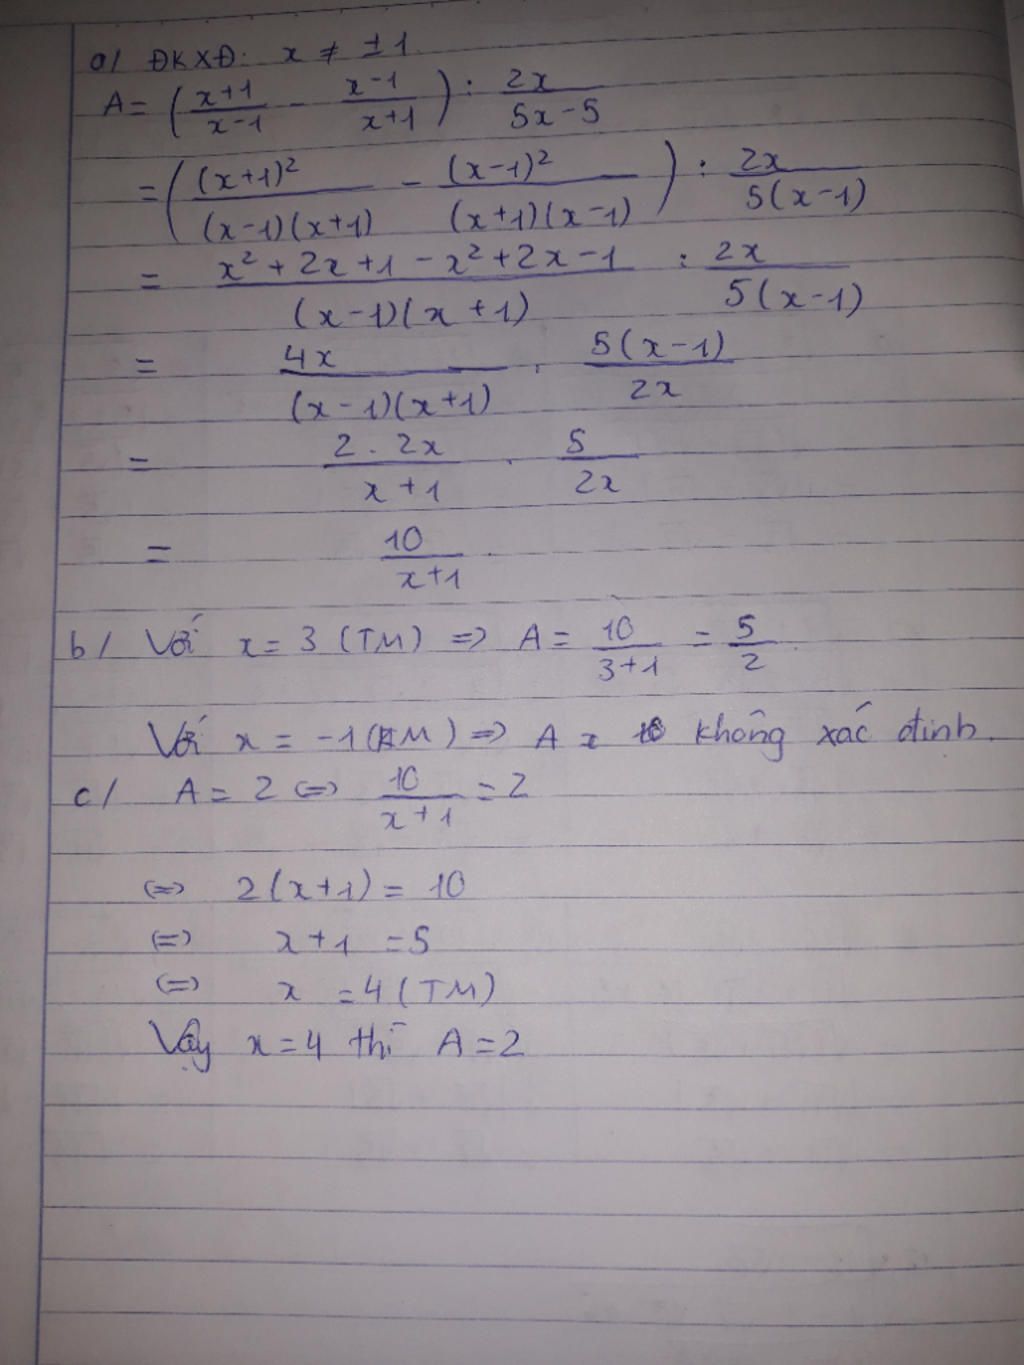 a/ ĐKXĐ: x ≠ ±1
A = ( (x+1)/(x-1) - (x-1)/(x+1) ) : 2x/(5x-5)
= ( (x+1)²/((x-1)(x+1)) - (x-1)²/((x+1)(x-1)) ) : 2x/(5(x-1))
= (x²+2x+1-x²+2x-1)/((x-1)(x+1)) : 2x/(5(x-1))
= 4x/((x-1)(x+1)) . 5(x-1)/2x
= (2.2x)/(x+1) . 5/2x
= 10/(x+1)
b/ Với x = 3 (TM) => A = 10/(3+1) = 5/2
Với x = -1 (KTM) => A không xác định.
c/ A = 2 <=> 10/(x+1) = 2
<=> 2(x+1) = 10
<=> x+1 = 5
<=> x = 4 (TM)
Vậy x = 4 thì A = 2